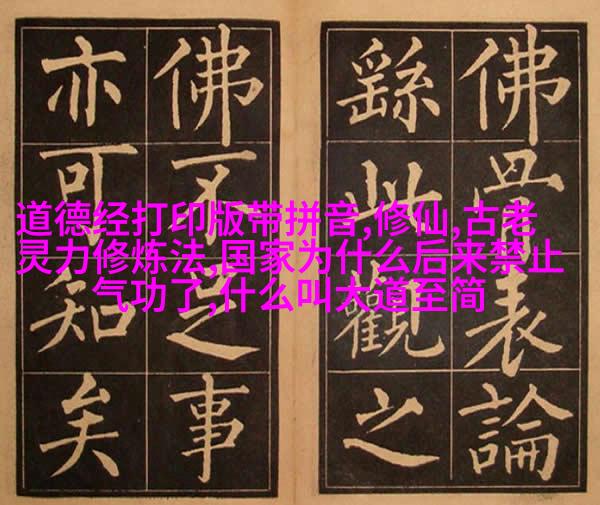 道德经打印版带拼音,修仙,古老
灵力修炼法,国家为什么后来禁止
气功了,什么叫大道至简
佛骨表論
繇此觀之
佛不足事
亦可知矣